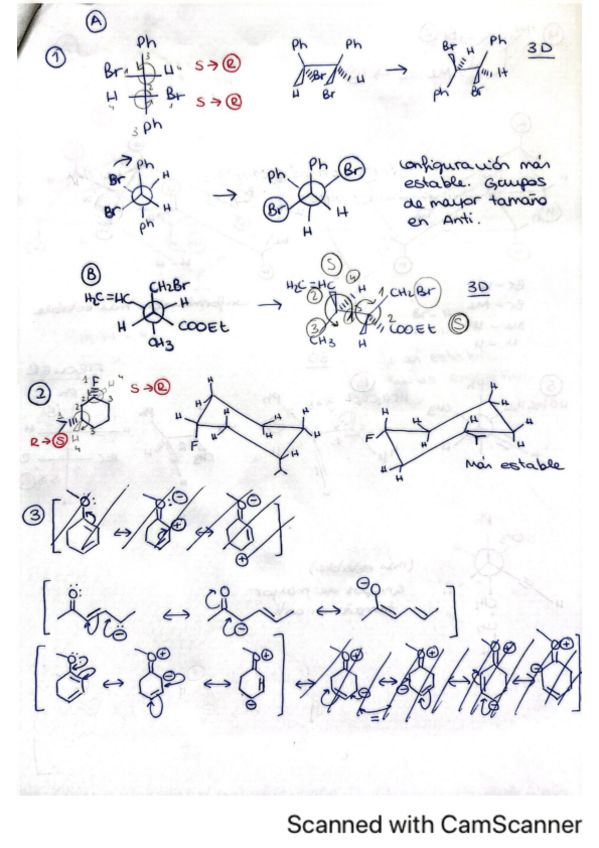 A
1
Ph
Br H S → R
H Br S → R
3 Ph
Ph Ph
H Br Br H
Br H Ph
Ph Br H
3D
Ph H
Br
Br H
Ph
Ph Ph Br
Br H
H
Configuración más
estable. Grupos
de mayor tamaño
en Anti.
B
CH₂Br
H₂C=HC H
H COOEt
CH₃
S
H₂C=HC H CH₂Br
2 4 1
3 2
CH₃ H COOEt S
3D
2
F
S → R
R → S
H
F
H
F
Más estable
3
Scanned with CamScanner